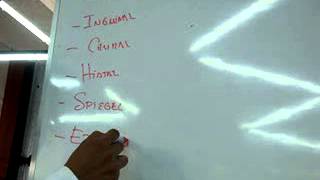 - INGUINAL
- CRURAL
- HIATAL
- SPIEGEL
- E